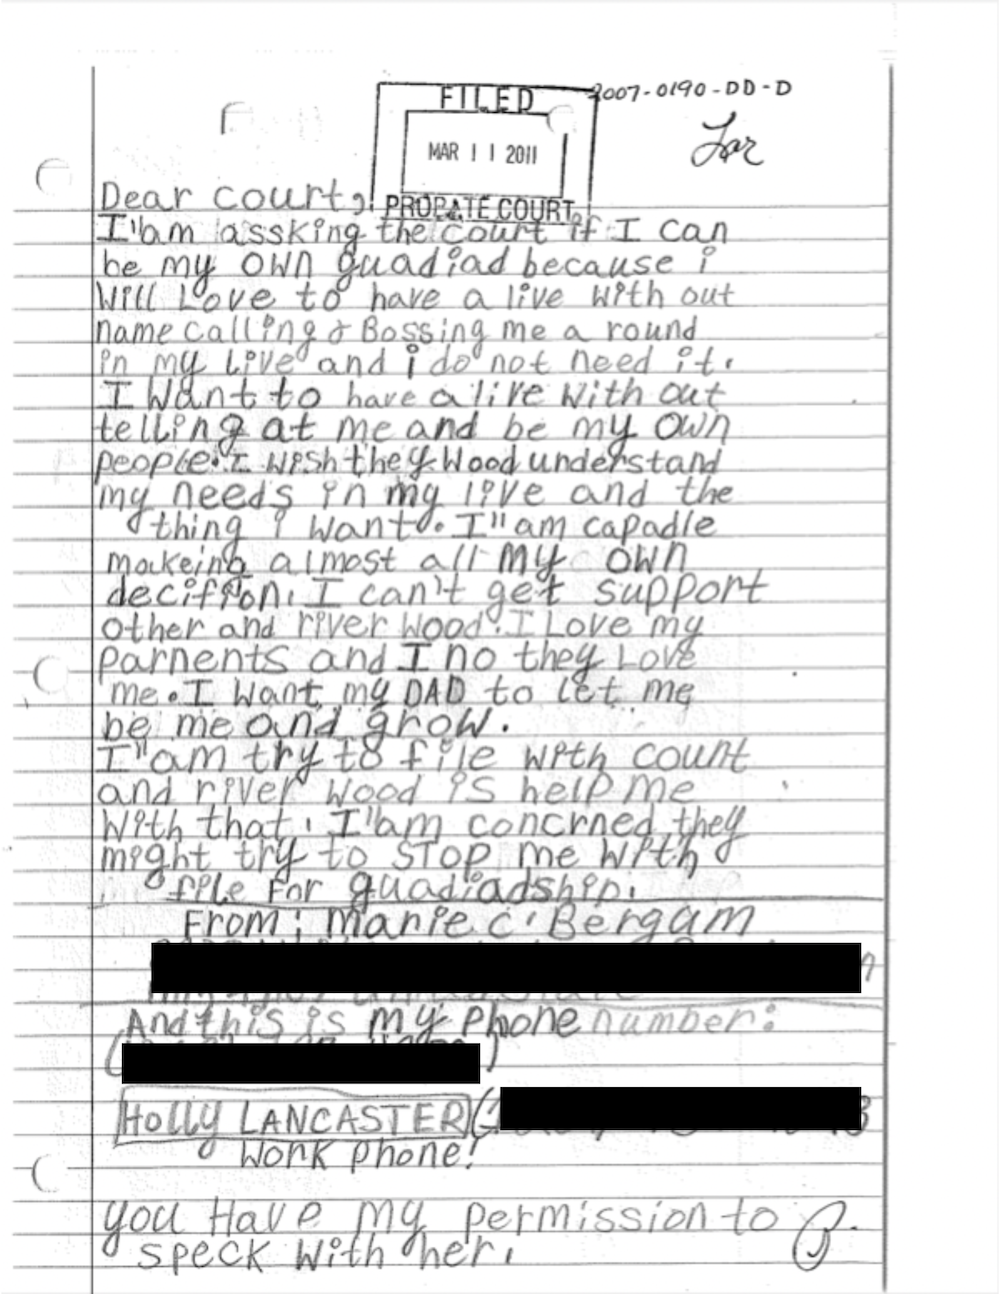 FILED
2007-0190-DD-D
MAR 11 2011
PROBATE COURT
Dear Court,
I"am assking the court if I can
be my own guadiad because i
will Love to have a live with out
name calling & Bossing me a round
in my live and i do not need it.
I want to have a live with out
telling at me and be my own
people. I wish they wood understand
my needs in my live and the
thing i want. I"am capadle
makeing almost all my own
decifion. I can't get support
other and river wood. I Love my
parnents and I no they Love
me. I want my DAD to let me
be me and grow.
I"am try to file with count
and river wood is help me
with that. I"am concrned they
might try to STOP me with
file For guadiadship.
From: Marie C. Bergum
And this is my phone number:
Holly LANCASTER
work phone!
you Have my permission to
speck with her.